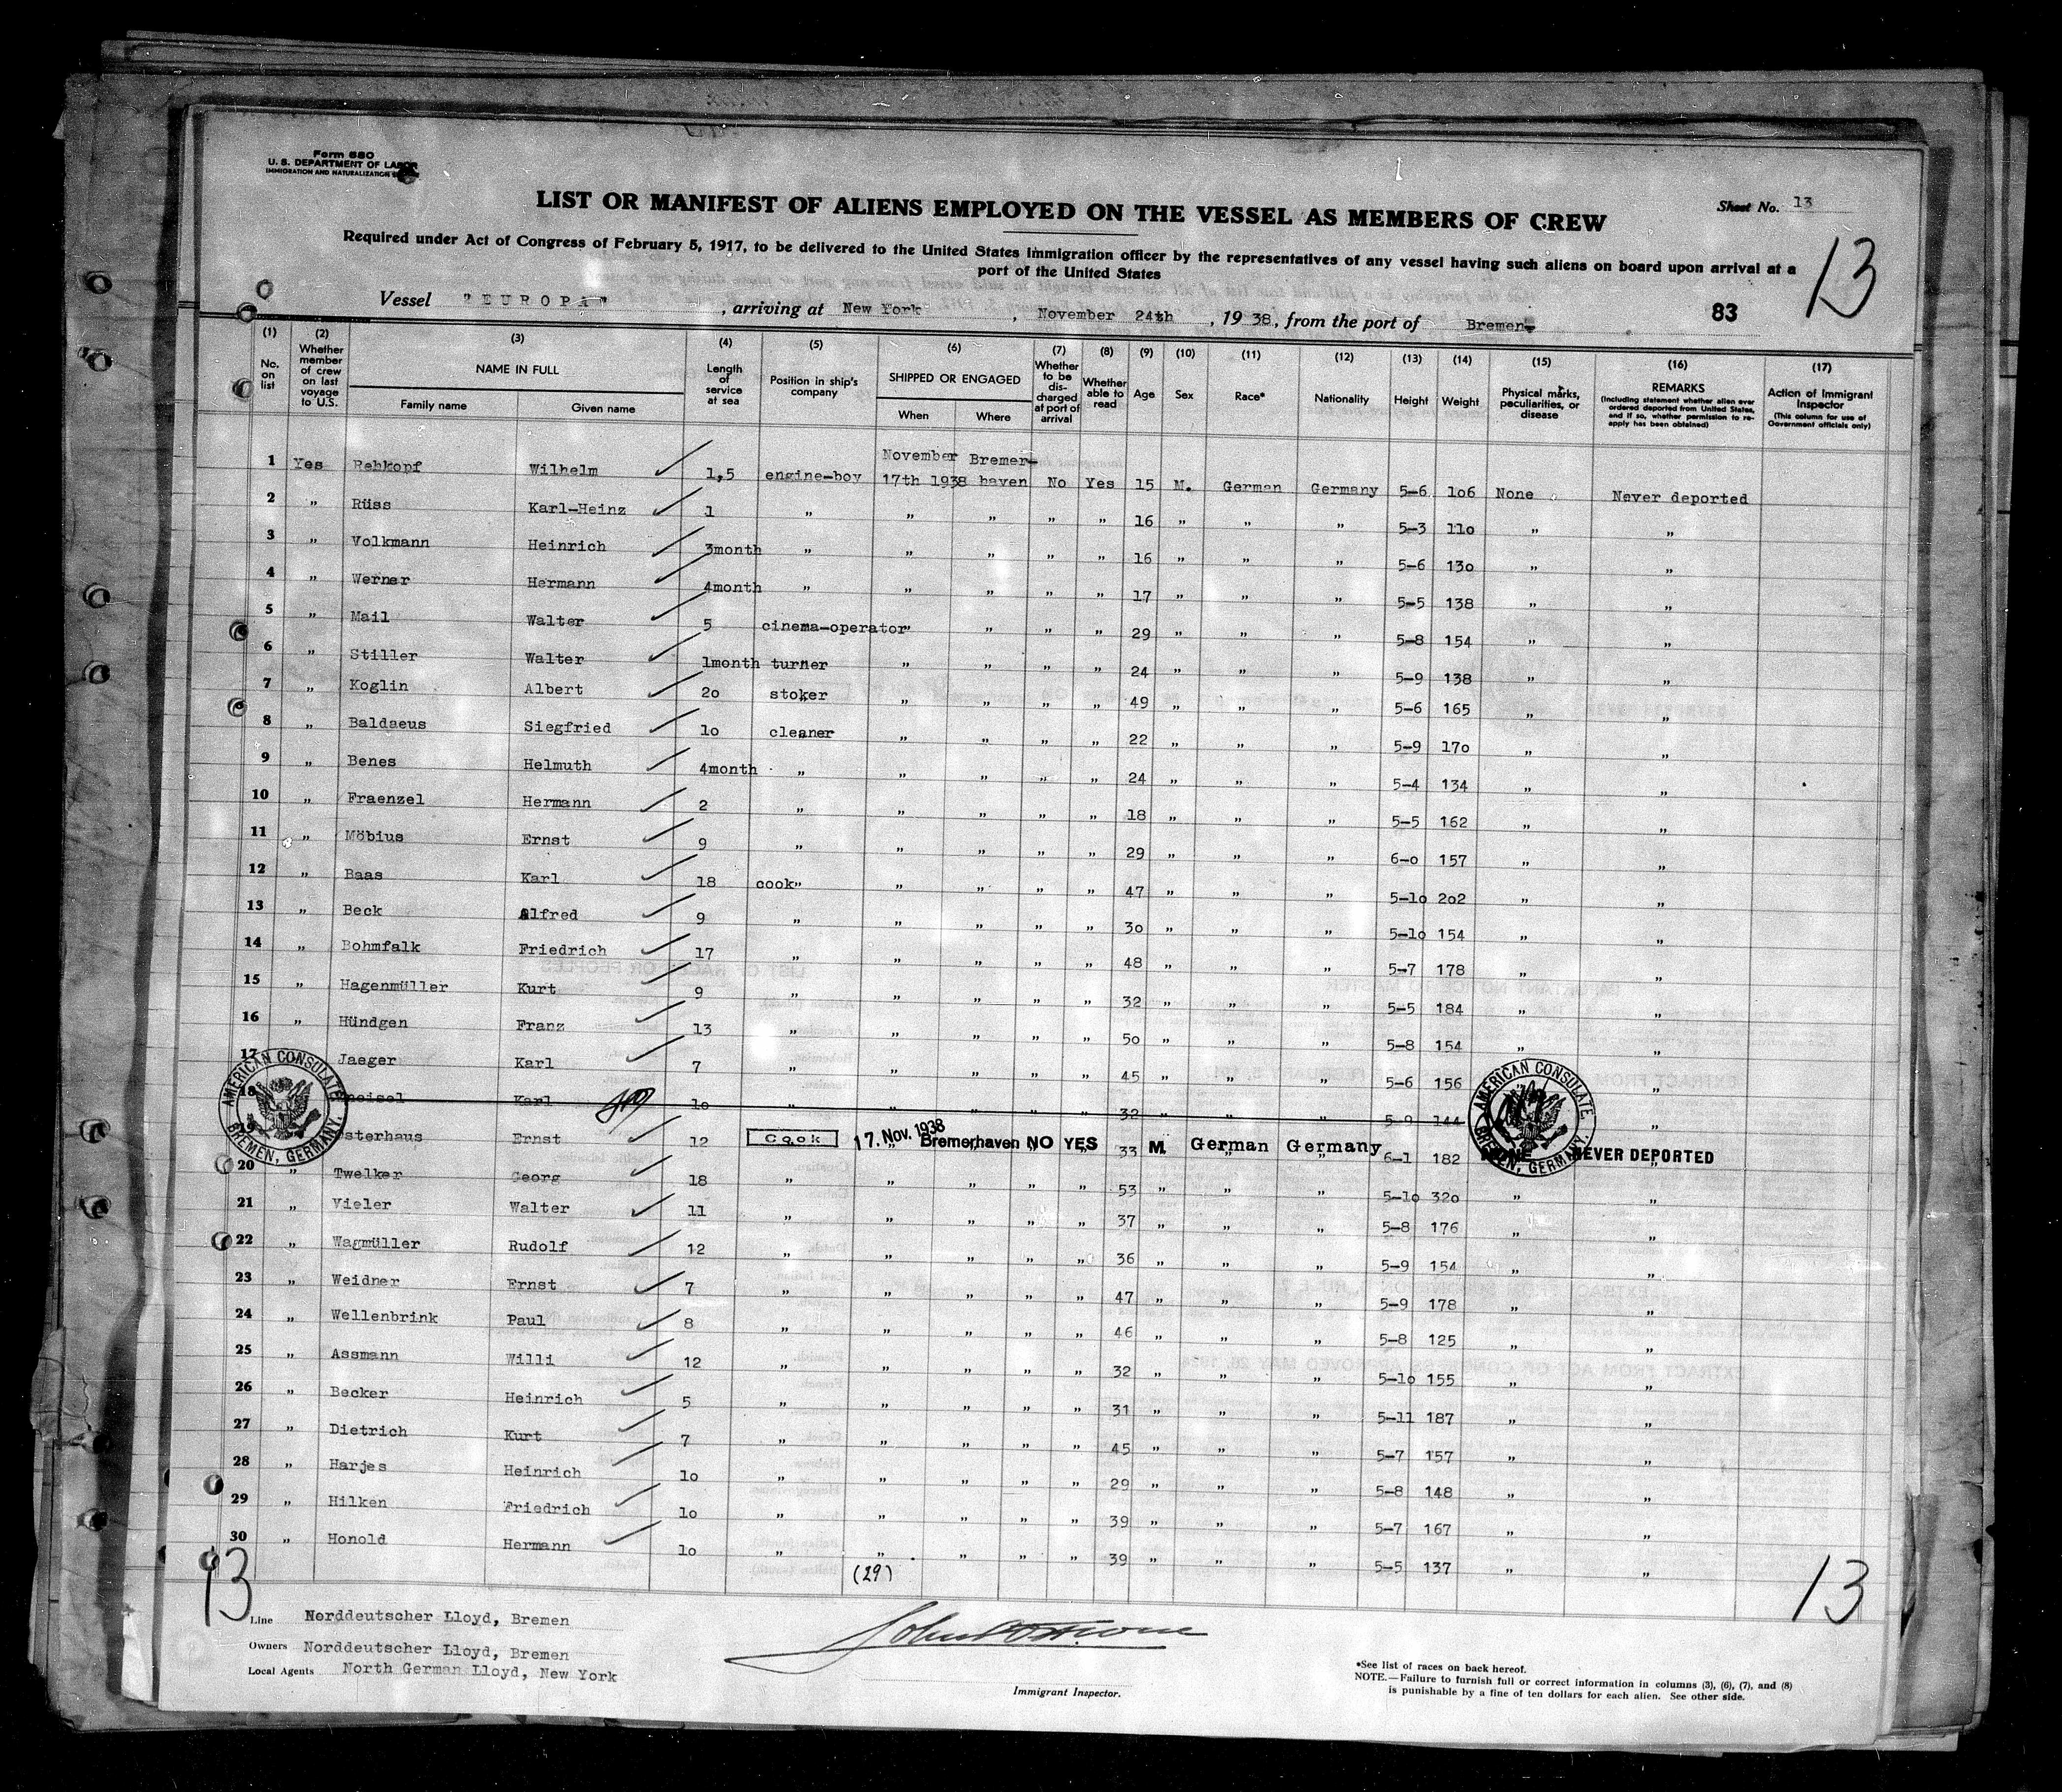 Form 680
U. S. DEPARTMENT OF LABOR
IMMIGRATION AND NATURALIZATION
LIST OR MANIFEST OF ALIENS EMPLOYED ON THE VESSEL AS MEMBERS OF CREW
Sheet No. 13
13
Required under Act of Congress of February 5, 1917, to be delivered to the United States immigration officer by the representatives of any vessel having such aliens on board upon arrival at a
port of the United States
Vessel "EUROPA", arriving at New York, November 24th, 19 38, from the port of Bremen
83
(1) No. on list
(2) Whether member of crew on last voyage to U.S.
(3) NAME IN FULL
Family name Given name
(4) Length of service at sea
(5) Position in ship's company
(6) SHIPPED OR ENGAGED
When Where
(7) Whether to be discharged at port of arrival
(8) Whether able to read
(9) Age
(10) Sex
(11) Race*
(12) Nationality
(13) Height
(14) Weight
(15) Physical marks, peculiarities, or disease
(16) REMARKS
(Including statement whether alien ever ordered deported from United States, and if so, whether permission to reapply has been obtained)
(17) Action of Immigrant Inspector
(This column for use of Government officials only)
1 Yes Rehkopf Wilhelm 1,5 engine-boy November 17th 1938 Bremer-haven No Yes 15 M. German Germany 5-6 106 None Never deported
2 " Rüss Karl-Heinz 1 " " " " " 16 " " " 5-3 110 " "
3 " Volkmann Heinrich 3month " " " " " 16 " " " 5-6 130 " "
4 " Werner Hermann 4month " " " " " 17 " " " 5-5 138 " "
5 " Mail Walter 5 cinema-operator " " " " 29 " " " 5-8 154 " "
6 " Stiller Walter 1month turner " " " " 24 " " " 5-9 138 " "
7 " Koglin Albert 20 stoker " " " " 49 " " " 5-6 165 " "
8 " Baldaeus Siegfried 10 cleaner " " " " 22 " " " 5-9 170 " "
9 " Benes Helmuth 4month " " " " " 24 " " " 5-4 134 " "
10 " Fraenzel Hermann 2 " " " " " 18 " " " 5-5 162 " "
11 " Möbius Ernst 9 " " " " " 29 " " " 6-0 157 " "
12 " Baas Karl 18 cook " " " " " 47 " " " 5-10 202 " "
13 " Beck Alfred 9 " " " " " 30 " " " 5-10 154 " "
14 " Bohmfalk Friedrich 17 " " " " " 48 " " " 5-7 178 " "
15 " Hagenmüller Kurt 9 " " " " " 32 " " " 5-5 184 " "
16 " Hündgen Franz 13 " " " " " 50 " " " 5-8 154 " "
17 Jaeger Karl 7 " " " " " 45 " " " 5-6 156 "
18 Karl 10 " " " " " 32 " " " 5-9 144 "
19 sterhaus Ernst 12 Cook 17. Nov. 1938 Bremerhaven NO YES 33 M. German Germany 6-1 182 NONE NEVER DEPORTED
20 " Twelker Georg 18 " " " " " 53 " " " 5-10 320 " "
21 " Vieler Walter 11 " " " " " 37 " " " 5-8 176 " "
22 " Wagmüller Rudolf 12 " " " " " 36 " " " 5-9 154 " "
23 " Weidner Ernst 7 " " " " " 47 " " " 5-9 178 " "
24 " Wellenbrink Paul 8 " " " " " 46 " " " 5-8 125 " "
25 " Assmann Willi 12 " " " " " 32 " " " 5-10 155 " "
26 " Becker Heinrich 5 " " " " " 31 " " " 5-11 187 " "
27 " Dietrich Kurt 7 " " " " " 45 " " " 5-7 157 " "
28 " Harjes Heinrich 10 " " " " " 29 " " " 5-8 148 " "
29 " Hilken Friedrich 10 " " " " " 39 " " " 5-7 167 " "
30 " Honold Hermann 10 " " " " " 39 " " " 5-5 137 " "
AMERICAN CONSULATE, BREMEN, GERMANY.
AMERICAN CONSULATE, BREMEN, GERMANY.
(29)
13
13
Line Norddeutscher Lloyd, Bremen
Owners Norddeutscher Lloyd, Bremen
Local Agents North German Lloyd, New York
Immigrant Inspector.
*See list of races on back hereof.
NOTE.—Failure to furnish full or correct information in columns (3), (6), (7), and (8)
is punishable by a fine of ten dollars for each alien. See other side.